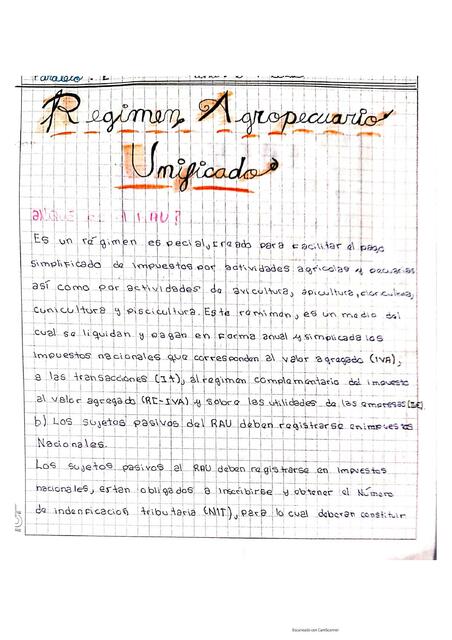 Paralelo: E
Regimen Agropecuario
Unificado
a)¿QUE ES EL RAU?
Es un régimen especial, creado para facilitar el pago
simplificado de impuestos por actividades agricolas y pecuarias
así como por actividades de avicultura, apicultura, floricultura,
cunicultura y piscicultura. Este remimen, es un medio del
cual se liquidan y pagan en forma anual y simplicada los
impuestos nacionales que corresponden al valor agregado (IVA),
a las transacciones (It), al regimen complementario del impuesto
al valor agregado (RC-IVA) y sobre las utilidades de las empresas (IUE)
b) Los sujetos pasivos del RAU deben registrarse en impuestos
Nacionales.
Los sujetos pasivos al RAU deben registrarse en Impuestos
nacionales, estan obligados a inscribirse y obtener el Número
de indenficacion tributaria (NIT), para lo cual deberan constituir
Escaneado con CamScanner